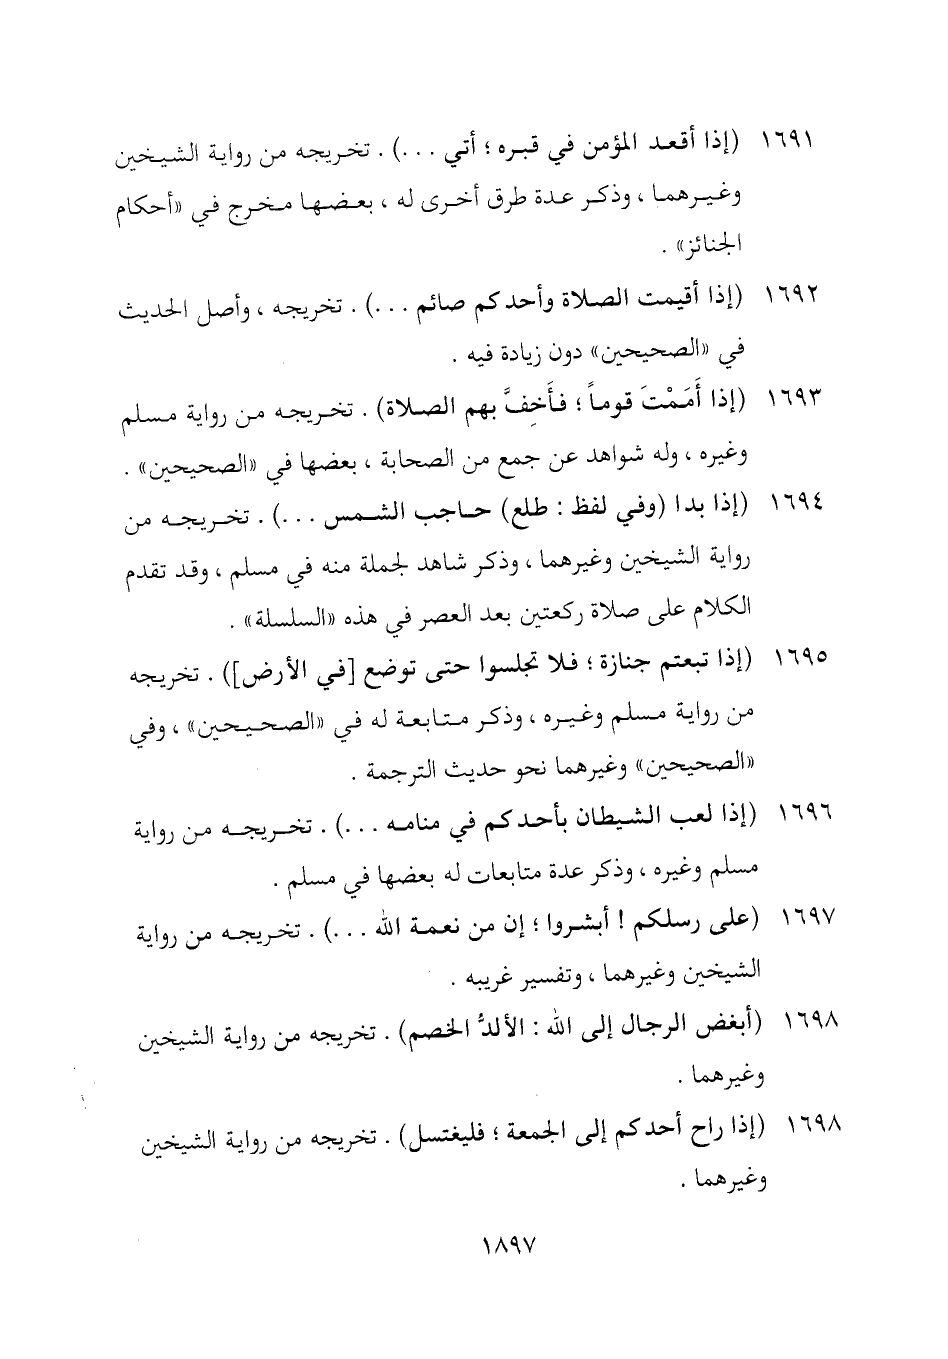 ١٦٩١ (إذا أقعد المؤمن في قبره ؛ أتي ...) . تخريجه من رواية الشيخين
وغيرهما ، وذكر عدة طرق أخرى له ، بعضها مخرج في «أحكام
الجنائز» .
١٦٩٢ (إذا أقيمت الصلاة وأحدكم صائم ...) . تخريجه ، وأصل الحديث
في «الصحيحين» دون زيادة فيه .
١٦٩٣ (إذا أَمَمْتَ قوماً ؛ فأَخِفَّ بهم الصلاة) . تخريجه من رواية مسلم
وغيره ، وله شواهد عن جمع من الصحابة ، بعضها في «الصحيحين» .
١٦٩٤ (إذا بدا (وفي لفظ : طلع) حاجب الشمس ...) . تخريجه من
رواية الشيخين وغيرهما ، وذكر شاهد لجملة منه في مسلم ، وقد تقدم
الكلام على صلاة ركعتين بعد العصر في هذه «السلسلة» .
١٦٩٥ (إذا تبعتم جنازة ؛ فلا تجلسوا حتى توضع [في الأرض]) . تخريجه
من رواية مسلم وغيره ، وذكر متابعة له في «الصحيحين» ، وفي
«الصحيحين» وغيرهما نحو حديث الترجمة .
١٦٩٦ (إذا لعب الشيطان بأحدكم في منامه ...) . تخريجه من رواية
مسلم وغيره ، وذكر عدة متابعات له بعضها في مسلم .
١٦٩٧ (على رسلكم ! أبشروا ؛ إن من نعمة الله ...) . تخريجه من رواية
الشيخين وغيرهما ، وتفسير غريبه .
١٦٩٨ (أبغض الرجال إلى الله : الألدُّ الخصم) . تخريجه من رواية الشيخين
وغيرهما .
١٦٩٨ (إذا راح أحدكم إلى الجمعة ؛ فليغتسل) . تخريجه من رواية الشيخين
وغيرهما .
١٨٩٧